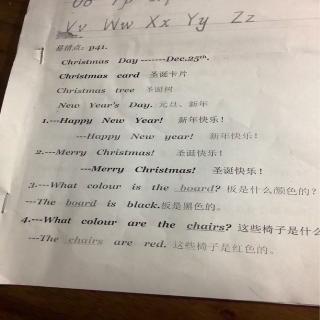 Vv Ww Xx Yy Zz
易错点:p41.
Christmas Day -------Dec.25th.
Christmas card 圣诞卡片
Christmas tree 圣诞树
New Year's Day. 元旦、新年
1.---Happy New Year! 新年快乐!
---Happy New year! 新年快乐!
2.---Merry Christmas! 圣诞快乐!
---Merry Christmas! 圣诞快乐!
3.---What colour is the board? 板是什么颜色的?
---The board is black.板是黑色的。
4.---What colour are the chairs? 这些椅子是什么
---The chairs are red. 这些椅子是红色的。